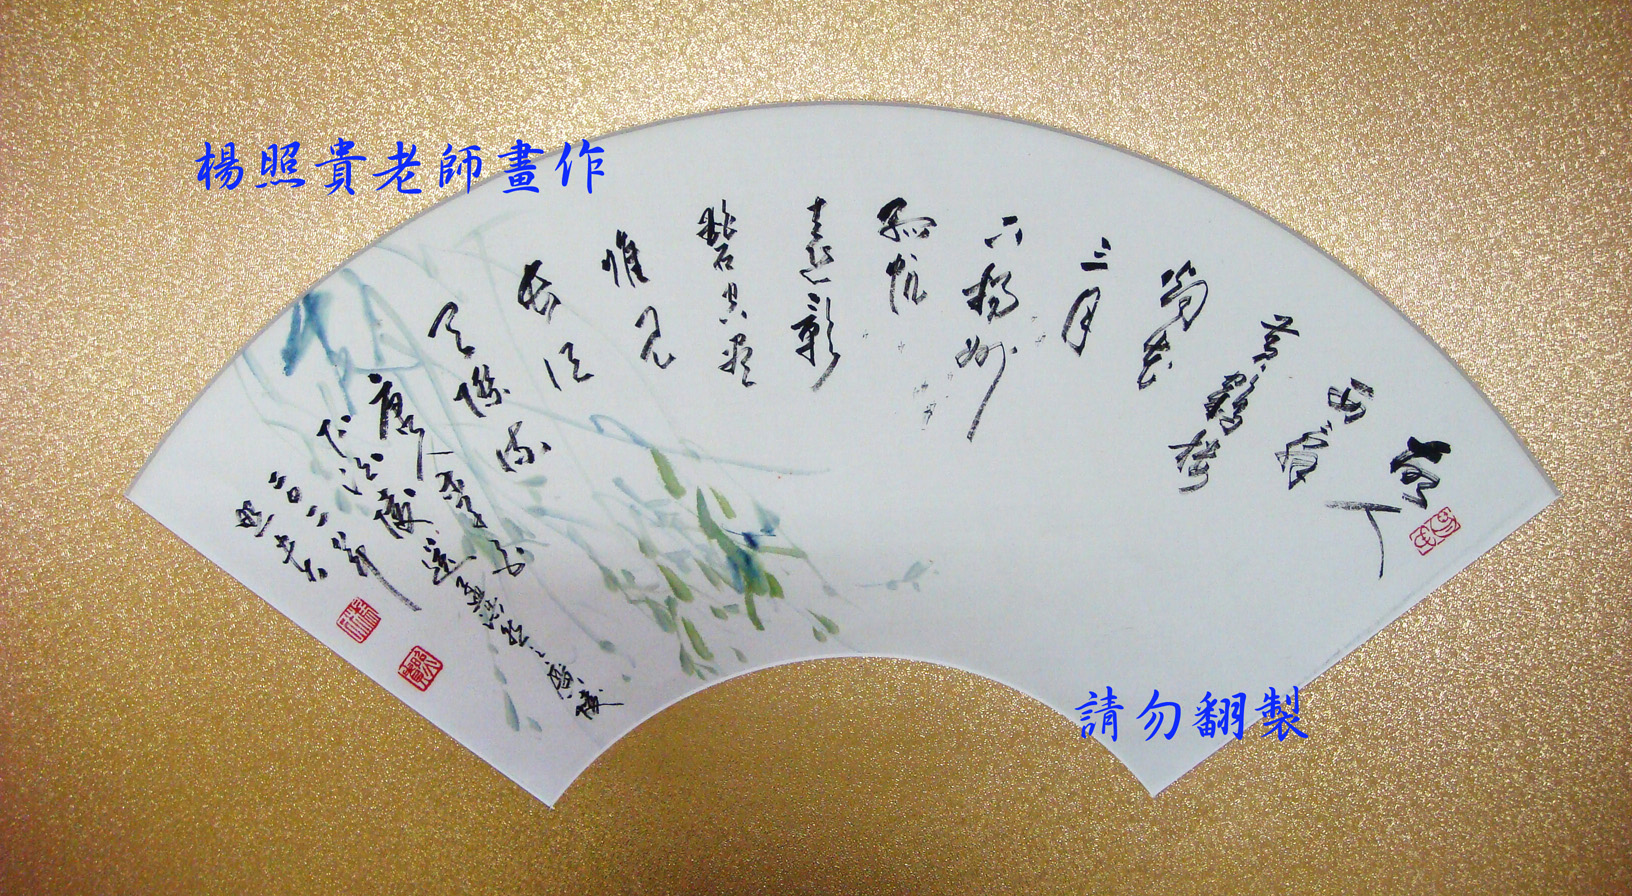 楊照貴老師畫作
故人
西辭
黃鶴樓
煙花
三月
下揚州
孤帆
遠影
碧空盡
惟見
長江
天際流
唐人李
廣陵
照貴
請勿翻製